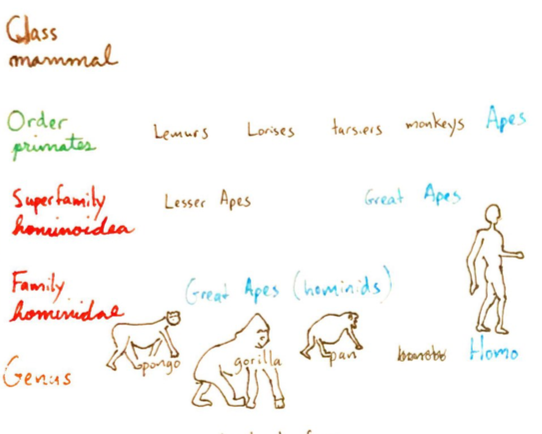 Class
mammal
Order
primates
Lemurs Lorises tarsiers monkeys Apes
Superfamily
hominoidea
Lesser Apes Great Apes
Family
hominidae
Great Apes (hominids)
Genus
pongo gorilla pan Homo